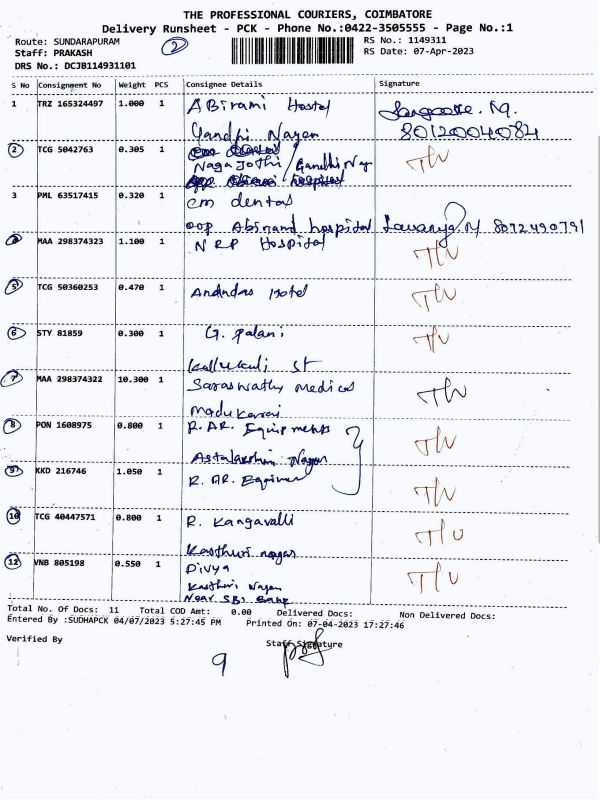 THE PROFESSIONAL COURIERS, COIMBATORE
Delivery Runsheet - PCK - Phone No.:0422-3505555 - Page No.:1
Route: SUNDARAPURAM
2
RS No.: 1149311
Staff: PRAKASH
RS Date: 07-Apr-2023
DRS No.: DCJB114931101
S No Consignment No Weight PCS Consignee Details Signature
1 TRZ 165324497 1.000 1 ABirami Hostel
Gandhi Nagen 8012004084
2 TCG 5042763 0.305 1
Nagajothi / Gandhi Nagr
3 PML 63517415 0.320 1 cm dental
opp Abinand hospital Lavanya.M 8072490791
MAA 298374323 1.100 1 NRP Hospital
5 TCG 50360253 0.470 1 Anandas Hotel
6 STY 81859 0.300 1 G. Palani
st
7 MAA 298374322 10.300 1 Saraswathy medical
madukarai
8 PON 1608975 0.800 1 R. AR. Equipments
Nagar
9 KKD 216746 1.050 1 R. AR.
10 TCG 40447571 0.800 1 R. Kangavalli
Kasthuri nagar
VNB 805198 0.550 1 Divya
Kasthuri Nagar
Near SBI Bank
Total No. Of Docs: 11 Total COD Amt: 0.00 Delivered Docs: Non Delivered Docs:
Entered By :SUDHAPCK 04/07/2023 5:27:45 PM Printed On: 07-04-2023 17:27:46
Verified By Staff Signature
9